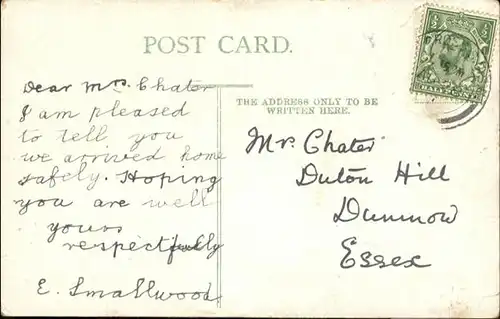 POST CARD.
Dear Mrs. Chater
I am pleased
to tell you
we arrived home
safely. Hoping
you are well
yours
respectfully
E. Smallwood
THE ADDRESS ONLY TO BE
WRITTEN HERE.
Mr. Chater
Duton Hill
Dunmow
Essex